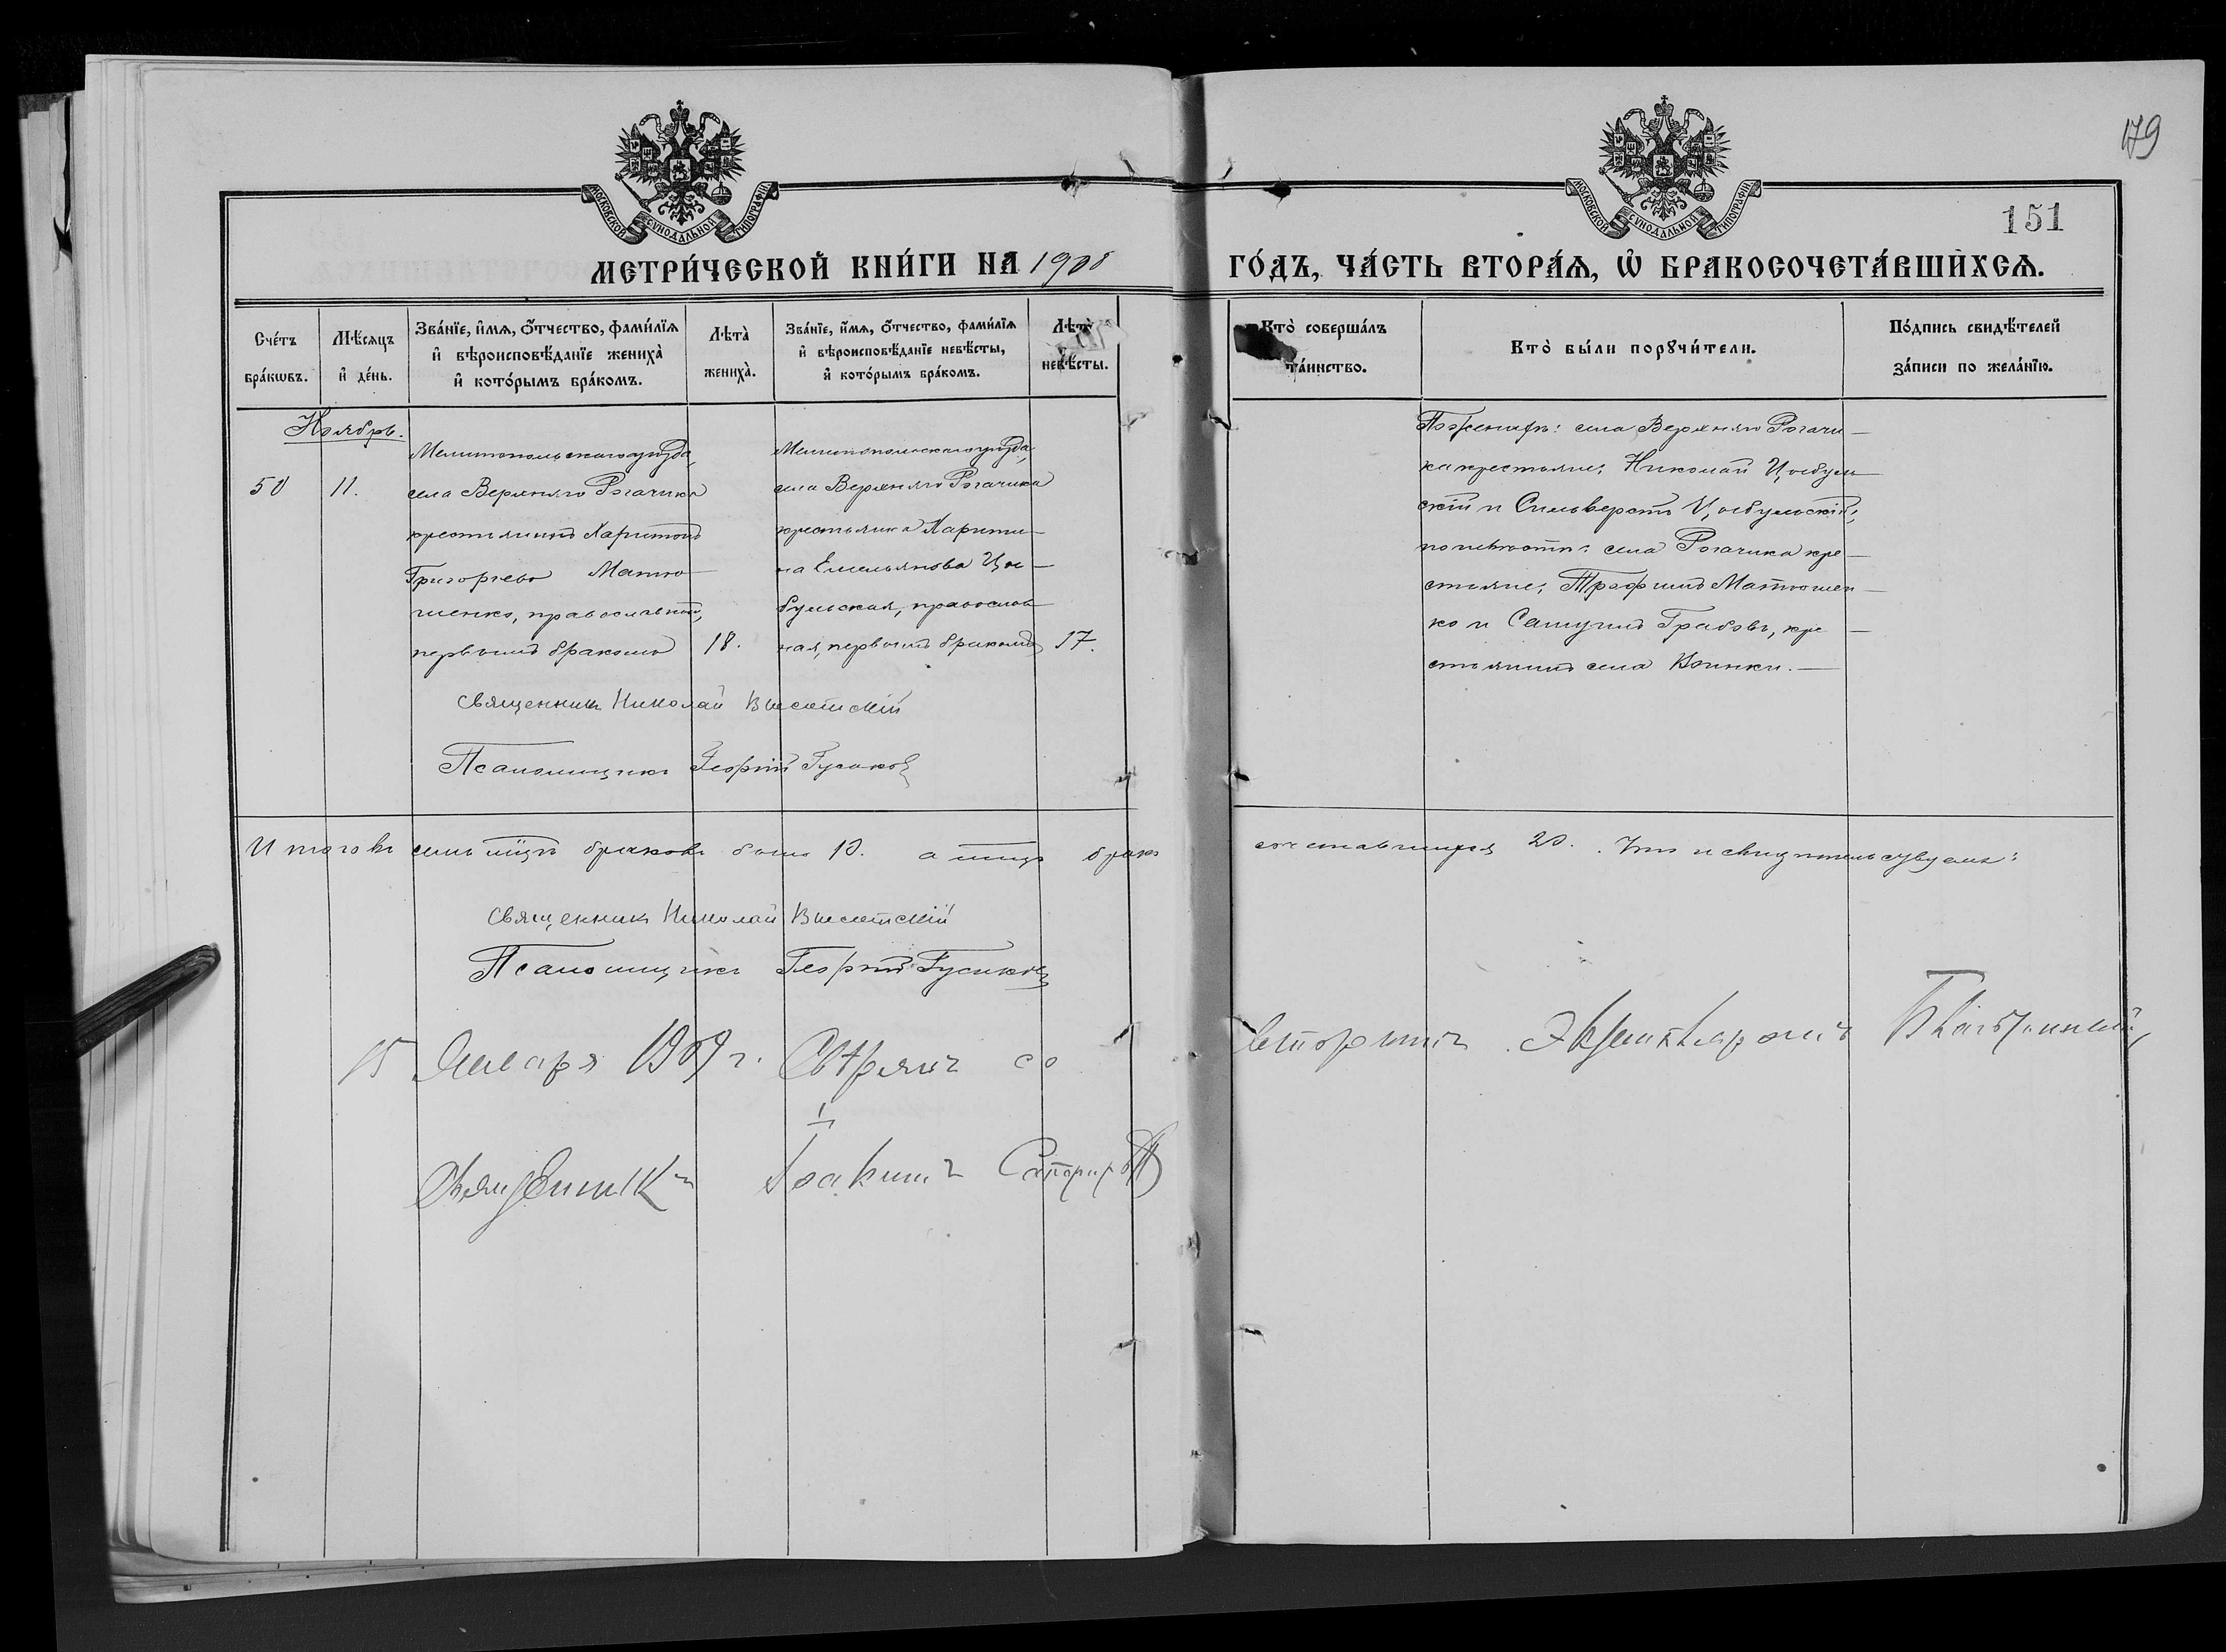 179
151
МОСКОВСКОЙ СѴНОДАЛЬНОЙ ТИПОГРАФІИ
МОСКОВСКОЙ СѴНОДАЛЬНОЙ ТИПОГРАФІИ
МЕТРИ́ЧЕСКОЙ КНИ́ГИ НА 1908 ГО́ДЪ, ЧА́СТЬ ВТОРА́Ѧ, Ѡ҆ БРАКОСОЧЕТА́ВШИХСѦ.
Сче́тъ бра́кѡвъ.
Мѣ́сѧцъ и҆ де́нь.
Зва́нїе, и҆́мѧ, ѻ҆́тчество, фами́лїѧ и҆ вѣроисповѣ́данїе жениха̀ и҆ кото́рымъ бра́комъ.
Лѣта̀ жениха̀.
Зва́нїе, и҆́мѧ, ѻ҆́тчество, фами́лїѧ и҆ вѣроисповѣ́данїе невѣ́сты, и҆ кото́рымъ бра́комъ.
Лѣта̀ невѣ́сты.
Кто̀ соверша́лъ та́инство.
Кто̀ бы́ли порꙋчи́тели.
По́дпись свидѣ́телей за́писи по жела́нїю.
Ноябрь.
50
11.
Мелитопольскаго уѣзда,
села Верхняго Рогачика
крестьянинъ Харитонъ
Григорьевъ Матю-
шенко, православный,
первымъ бракомъ
18.
Мелитопольскаго уѣзда,
села Верхняго Рогачика
крестьянка Харити-
на Емельянова Цы-
бульская, православ-
ная, первымъ бракомъ
17.
По женихѣ: села Верхняго Рогачи-
ка крестьяне, Николай Цыбуль-
скій и Сильверстъ Цыбульскій;
по невѣстѣ: села Рогачика кре-
стьяне, Трофимъ Матюшен-
ко и Самуилъ Грабовъ, кре-
стьянинъ села
Священникъ Николай Высотскій
Псаломщикъ Георгій Гусаковъ
Итого въ семъ мцѣ браковъ было 10. а лицъ брако
сочетавшихся 20. Что и свидѣтельствуемъ:
Священникъ Николай Высотскій
Псаломщикъ Георгій Гусаковъ
15 Января 1909 г. Свѣрялъ со вторымъ экземпляромъ
Священникъ Іоакимъ